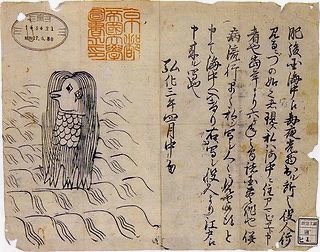 肥後国海中え毎夜光物出ル所之役人行
見るニづの如く者現ス私ハ海中ニ住アマビヱト申
者也當年より六ヶ年之間諸国豊作也併
病流行早々私シ写シ人々ニ見セ候得と
申て海中へ入けり右写シ役人より江戸え
申来ル写也
弘化三年四月中旬
京都
帝國大學
圖書之印